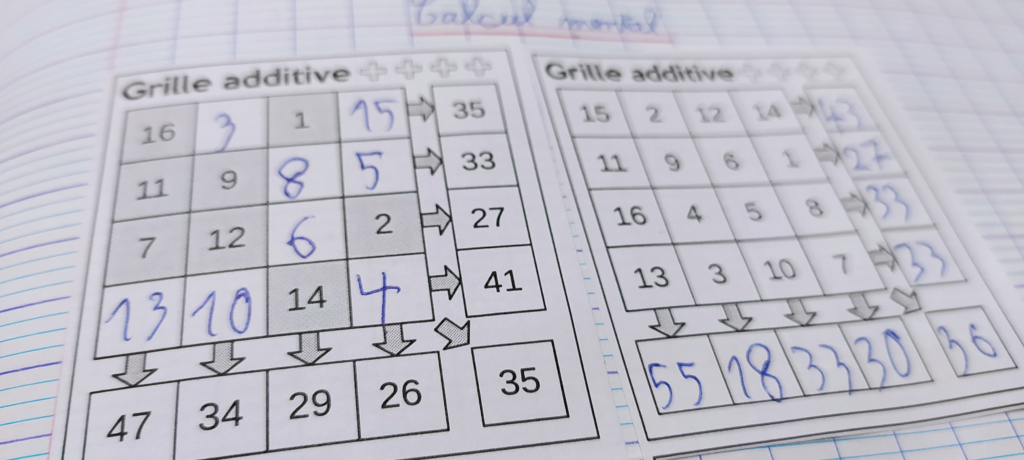 Calcul mental
Grille additive
16 3 1 15 35
11 9 8 5 33
7 12 6 2 27
13 10 14 4 41
47 34 29 26 35
Grille additive
15 2 12 14 43
11 9 6 1 27
16 4 5 8 33
13 3 10 7 33
55 18 33 30 36